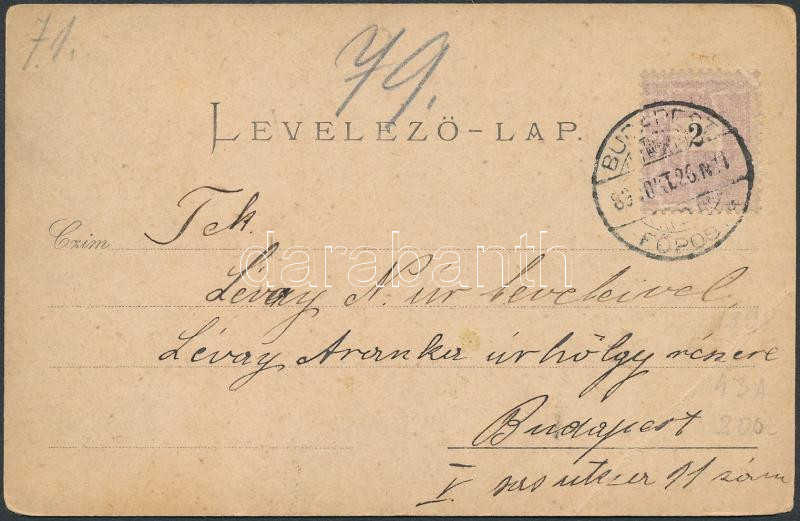 71.
79.
LEVELEZŐ-LAP.
2
BUDAPEST
89 OKT. 26. N. 11
FŐPOS
Czim
Tek.
Lévay N. úr leveleivel
Lévay Aranka úrhölgy részére
Budapest
V. sas útcza 11 szám
darabanth
43A
200